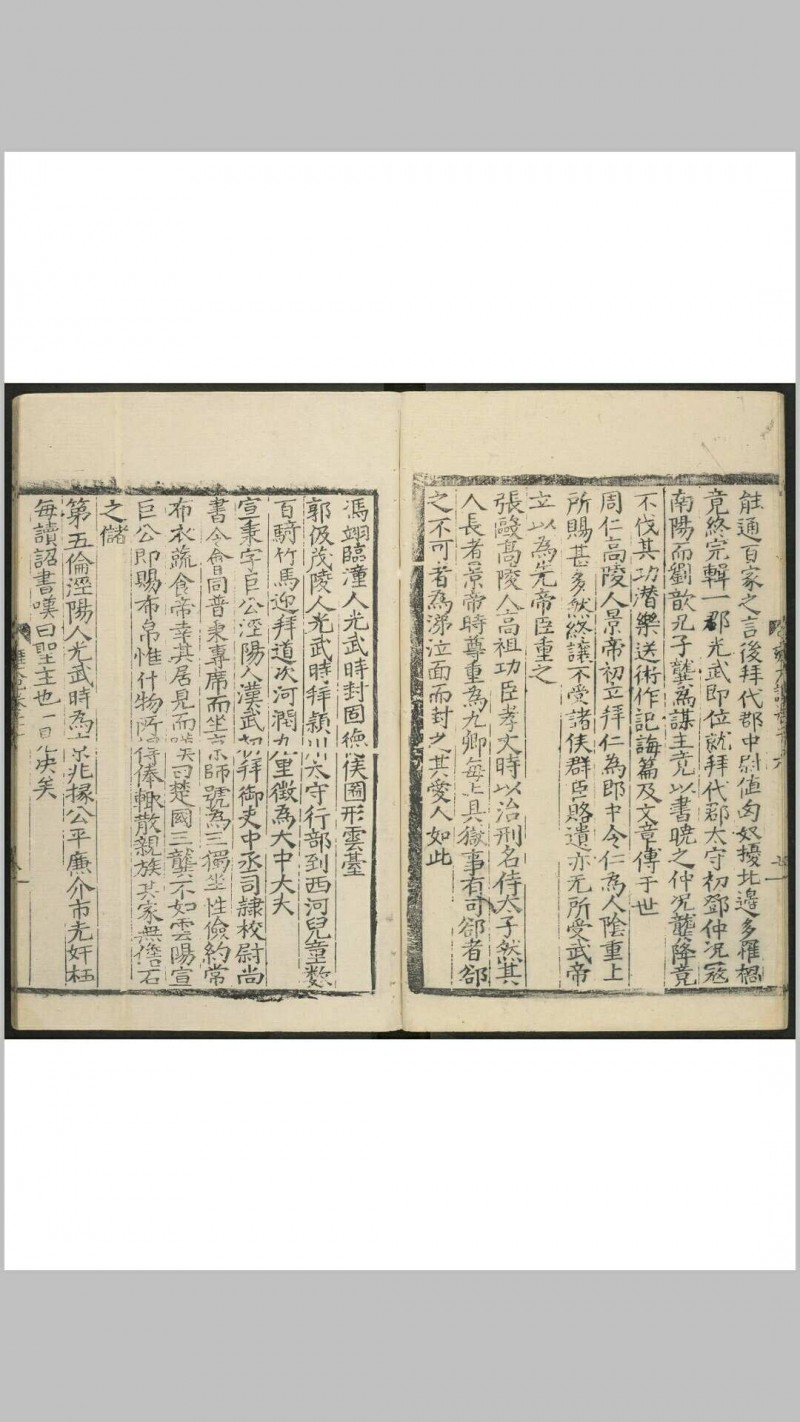 能通百家之言後拜代郡中尉值匈奴擾北邊多罹禍
竟終完輯一郡光武即位就拜代郡太守初鄧仲況冦
南陽而劉歆兄子龔為謀主竟以書曉之仲況龔降竟
不伐其功潜樂送術作記誨篇及文章傳于世
周仁高陵人景帝初立拜仁為郎中令仁為人陰重上
所賜甚多然終讓不受諸侯群臣賂遺亦无所受武帝
立以為先帝臣重之
張敺髙陵人高祖功臣孝文時以治刑名侍太子然其
人長者景帝時尊重為九卿每上具獄事有可郤者郤
之不可者為涕泣面而封之其愛人如此
馮翊臨潼人光武時封固德侯圖形雲䑓
郭伋茂陵人光武時拜潁川太守行部到西河兒童数
百騎竹馬迎拜道次河潤九里徴為大中大夫
宣秉字巨公涇陽人漢武初拜御史中丞司隷校尉尚
書令會同普秉專席而坐京師號為三獨坐性儉約常
布衣蔬食帝幸其居見而嘆曰楚國三龔不如雲陽宣
巨公即賜布帛惟什物所得俸輙散親族其家無儋石
之儲
第五倫涇陽人光武時為京兆掾公平廉介市无奸枉
每讀詔書嘆曰聖主也一見决矣